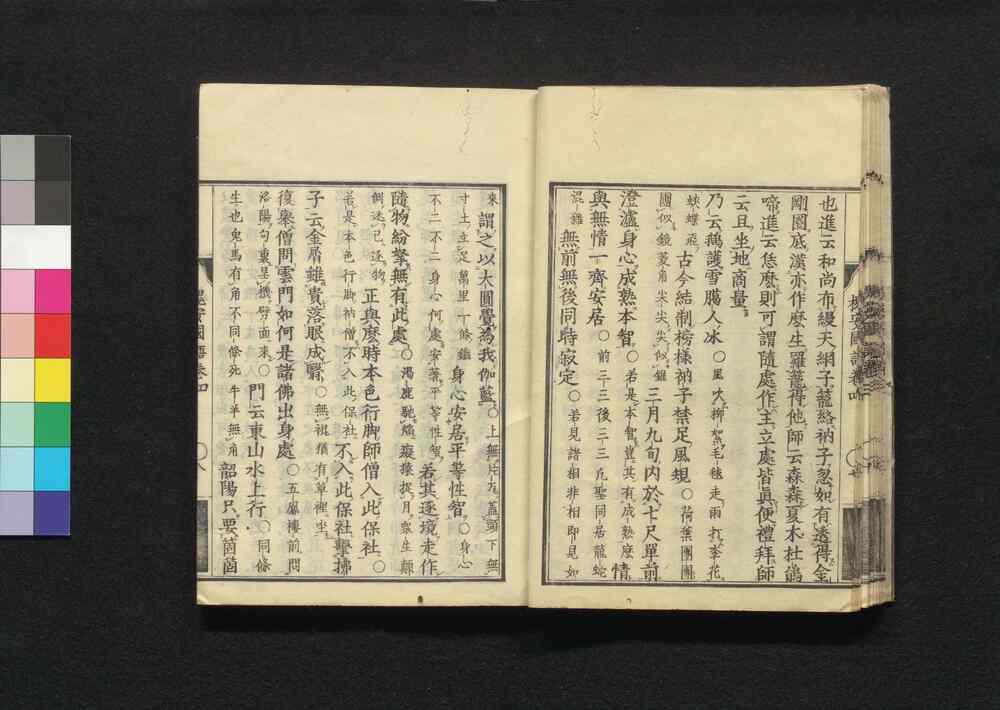 也進云和尚布縵天網子籠絡衲子忽如有透得金
剛圈底漢亦作麼生羅籠得他師云森森夏木杜鵑
啼進云恁麼則可謂隨處作主立處皆眞便禮拜師
云且坐地商量
乃云鵝護雪臘人冰○風吹柳絮毛毬走雨打梨花
蛺蝶飛古今結制榜樣衲子禁足風規○荷葉團團
團似鏡菱角尖尖尖似錐三月九旬內於七尺單前
澄瀘身心成熟本智○若是本智豈其有成熟麼情
與無情一齊安居○前三三後三三凡聖同居龍蛇
混雜無前無後同時寂定○若見諸相非相卽見如
來謂之以大圓覺爲我伽藍○上無片瓦蓋頭下無
寸土立足萬里一條鐵身心安居平等性智○身心
不二不二身心何處安著平等性智若其逐境走作
隨物紛拏無有此處○渴鹿馳燄癡猿捉月衆生顚
倒迷己逐物正與麼時本色行脚師僧入此保社○
若是本色行脚衲僧不入此保社不入此保社擊拂
子云金屑雖貴落眼成翳○無裩猶有草裡坐
復擧僧問雲門如何是諸佛出身處○五鳳樓前問
洛陽句裏呈機劈面來○門云東山水上行○同條
生也兔馬有角不同條死牛羊無角韶陽只要箇箇